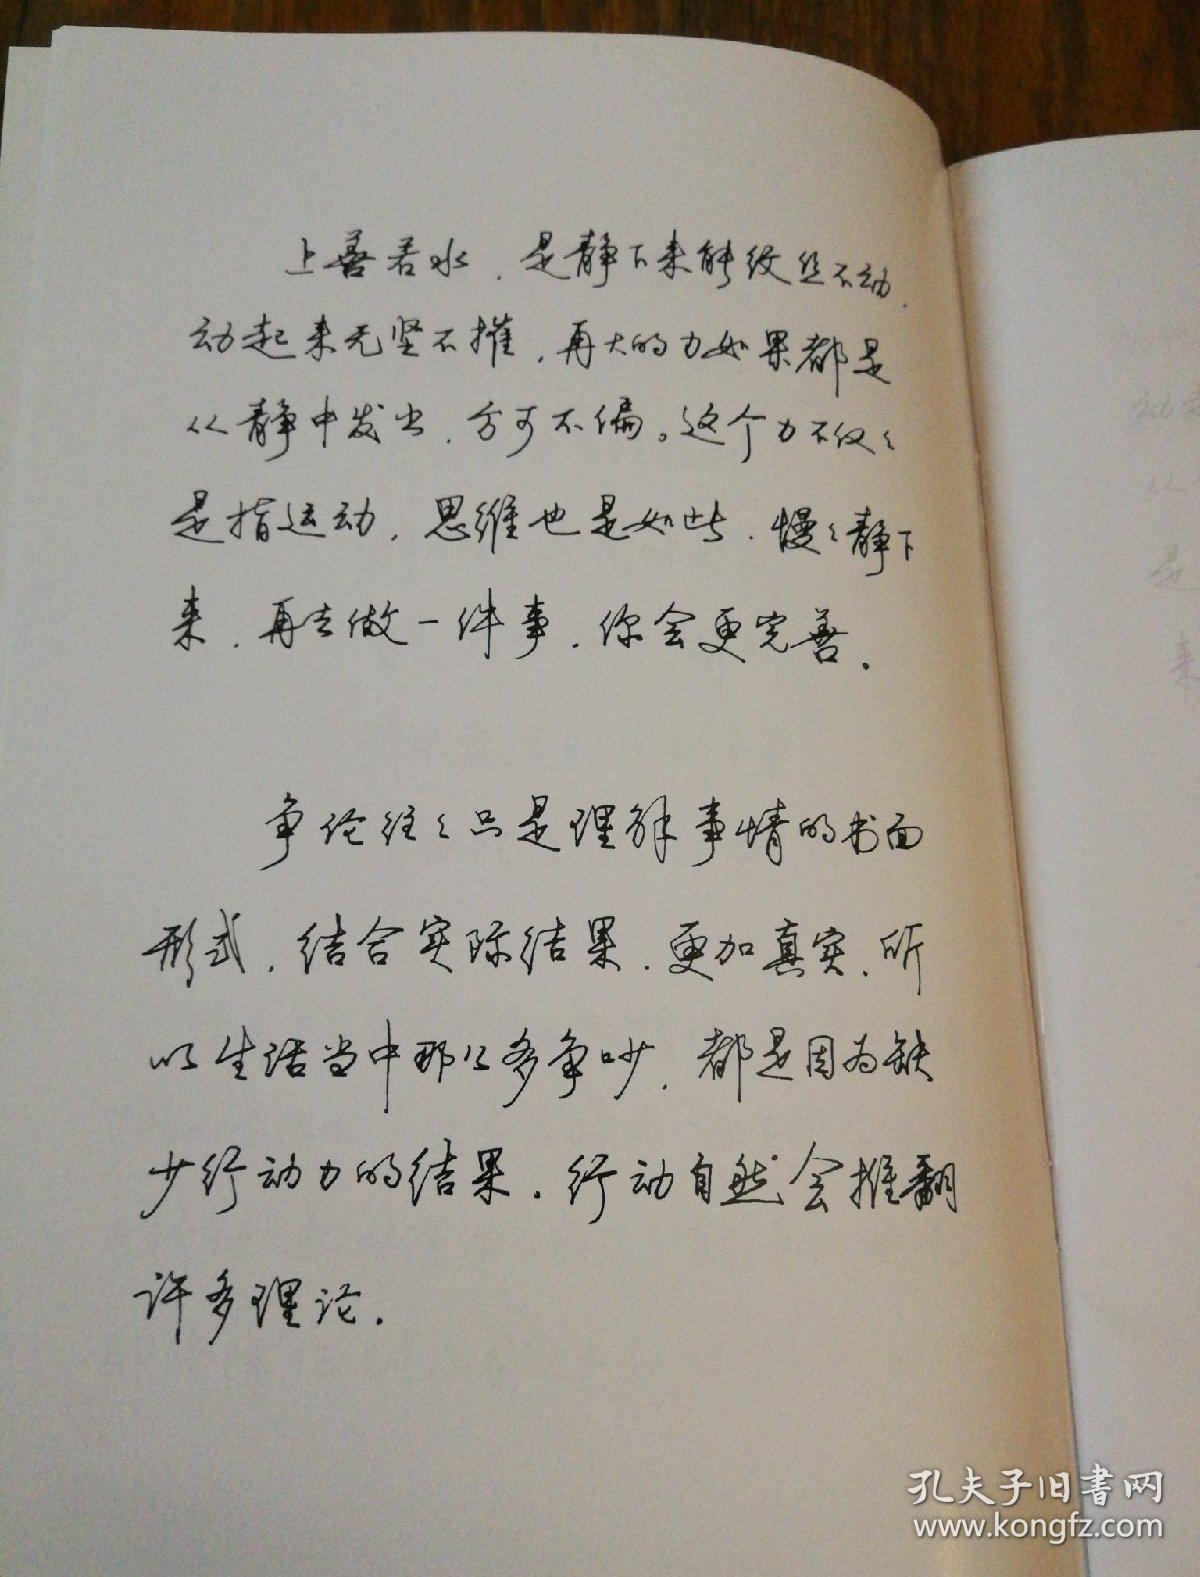 上善若水，是静下来能纹丝不动，
动起来无坚不摧，再大的力如果都是
从静中发出，方可不偏。这个力不仅々
是指运动，思维也是如此，慢々静下
来，再去做一件事，你会更完善。
争论往々只是理解事情的书面
形式，结合实际结果，更加真实，所
以生活当中那么多争吵，都是因为缺
少行动力的结果。行动自然会推翻
许多理论。
孔夫子旧书网
www.kongfz.com